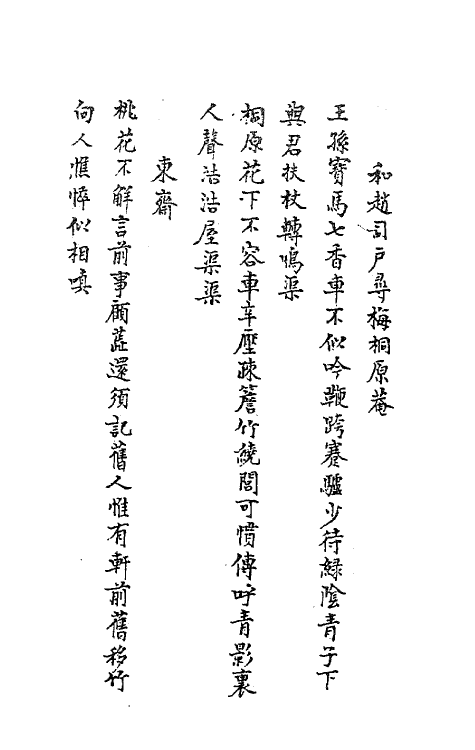 和趙司戶尋梅桐原菴
王孫寶馬七香車不似吟鞭跨蹇驢少待綠陰青子下
與君扶杖轉鳴渠
桐原花下不容車辛壓疎簷竹繞閭可惜傳呼青影裏
人聲浩浩屋渠渠
東齋
桃花不解言前事顧蕋還須記舊人惟有軒前舊移竹
向人憔悴似相嗔